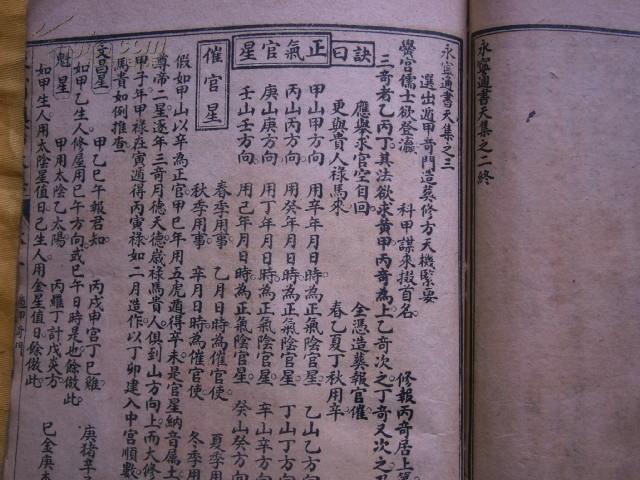 永寧通書天集之二終
永寧通書天集之三
選出遁甲奇門造葬修方天機緊要
黌宫儒士欲登瀛 科甲謀來掇百名 修報丙奇居上
三奇者乙丙丁其法欲求黄甲丙奇為上乙奇次之丁奇又次之
應舉求官空自回 全憑造葬報官催
更與貴人祿馬來 春乙夏丁秋用辛
訣曰
正氣官星
甲山甲方向 用辛年月日時為正氣陰官星 乙山乙方向
丙山丙方向 用癸年月日時為正氣陰官星 丁山丁方向
庚山庚方向 用丁年月日時為正氣陰官星 辛山辛方向
壬山壬方向 用己年月日時為正氣陰官星 癸山癸方向
催官星
春季用事 乙月日時為催官使 夏季用
秋季用事 辛月日時為催官使 冬季用
假如甲山以辛為正官甲巳年用五虎遁得辛未是官星納音屬土
尊帝二星逐年三奇月德天德歲祿馬貴人俱到山方向上而大修
甲子年甲祿在寅遁得丙寅祿如二月造作以丁卯建入中宫順數
馬貴如例推查
文昌星 甲乙巳午報君知 丙戊申宫丁巳雞 庚猪辛
如甲乙生人修屋用巳午方向或巳午日時是也餘做此
魁星 甲用太陰乙太陽 丙羅丁計戊炁方 巳金庚
如甲生人用太陰星值日己生人用金星值日餘做此
遁甲奇門